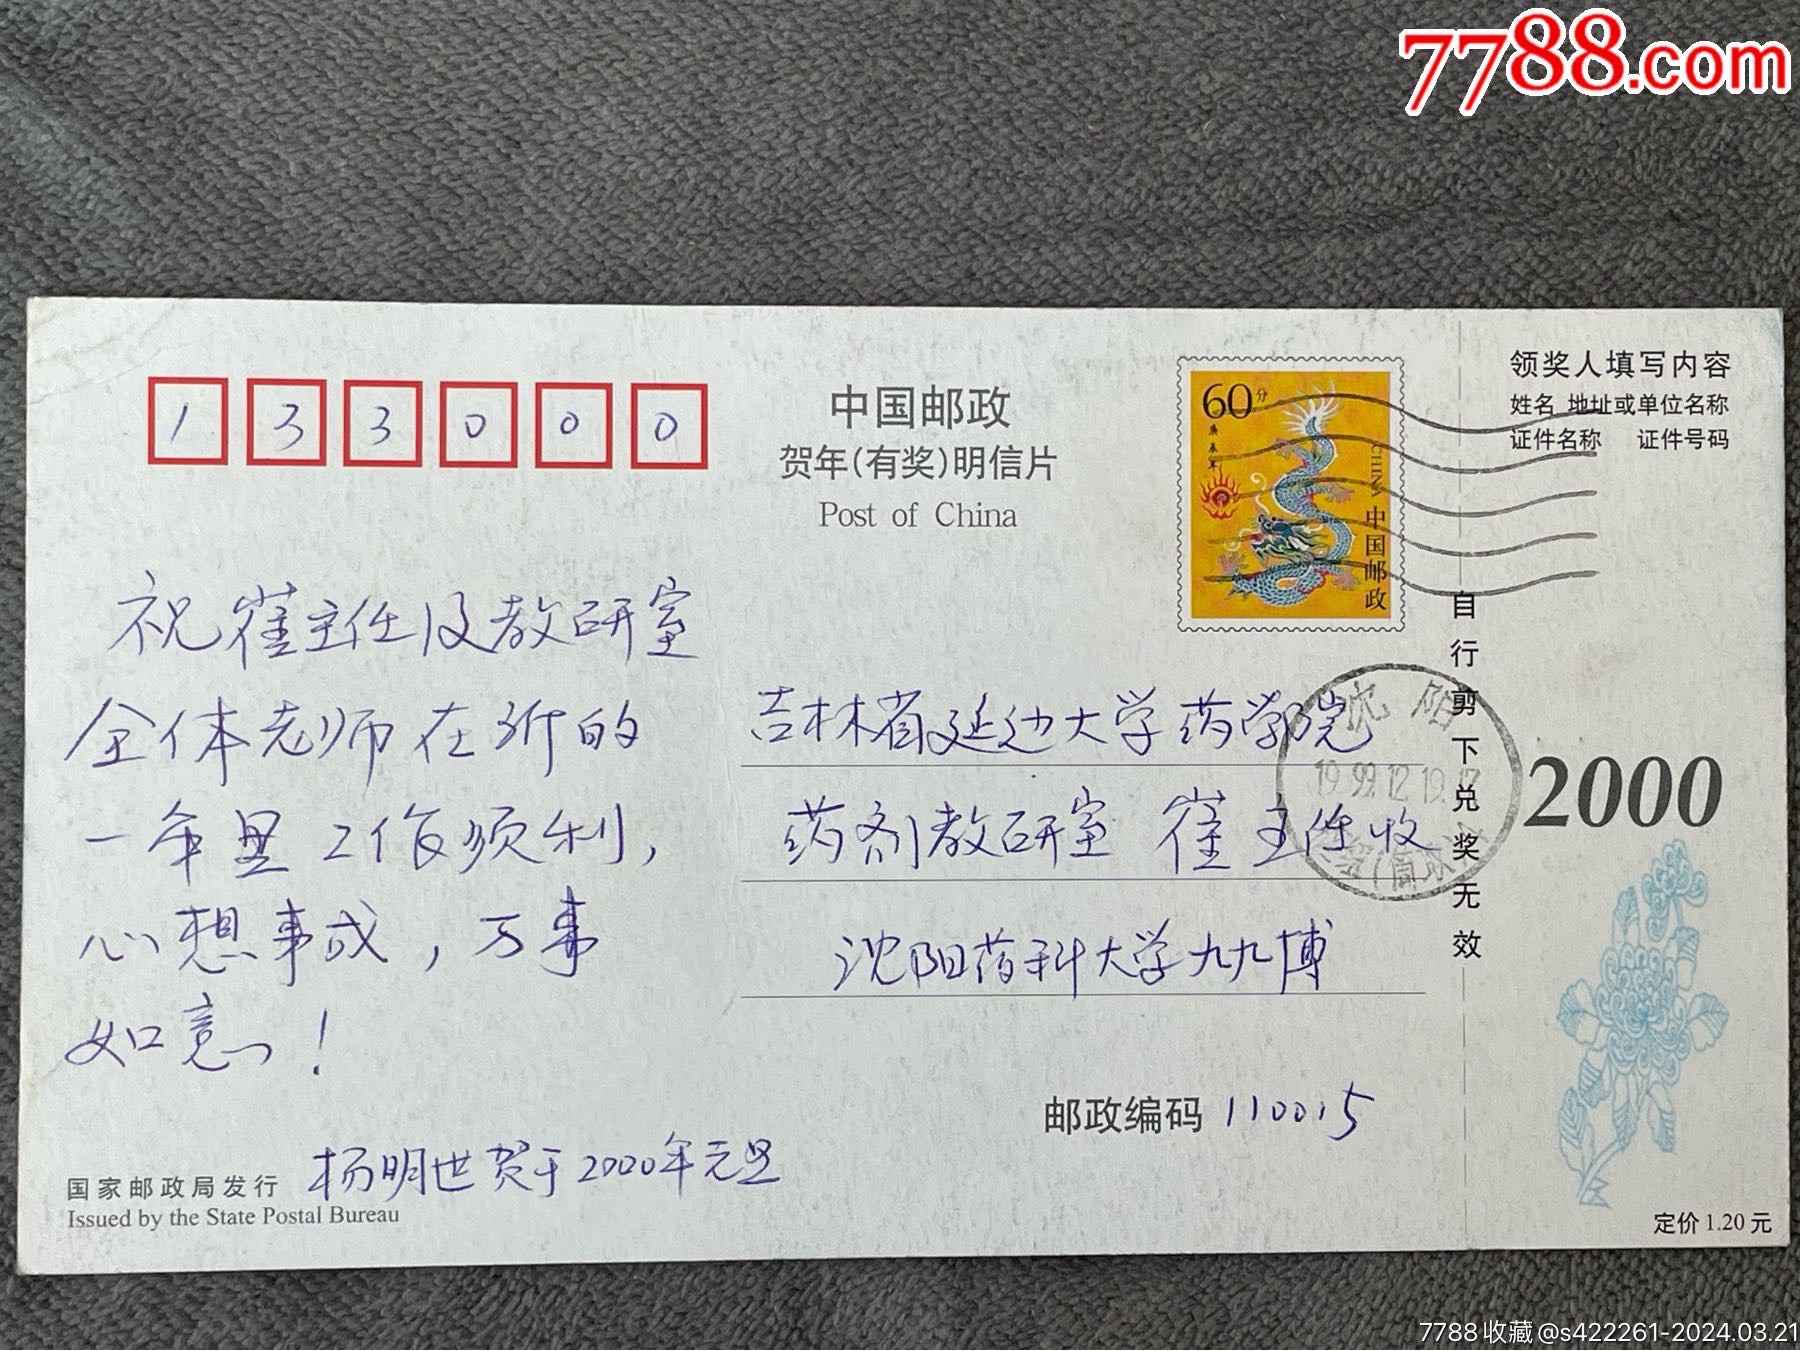 7788.com
1 3 3 0 0 0
中国邮政
贺年(有奖)明信片
Post of China
60分
庚辰年
CHINA
中国邮政
领奖人填写内容
姓名 地址或单位名称
证件名称 证件号码
自行剪下兑奖无效
祝崔主任及教研室
全体老师在新的
一年里工作顺利,
心想事成,万事
如意!
杨明世贺于2000年元旦
吉林省延边大学药学院
药剂教研室 崔主任收
沈阳药科大学九九博
沈阳
1999.12.19.17
2000
邮政编码 110015
国家邮政局发行
Issued by the State Postal Bureau
定价 1.20 元
7788收藏@s422261-2024.03.21